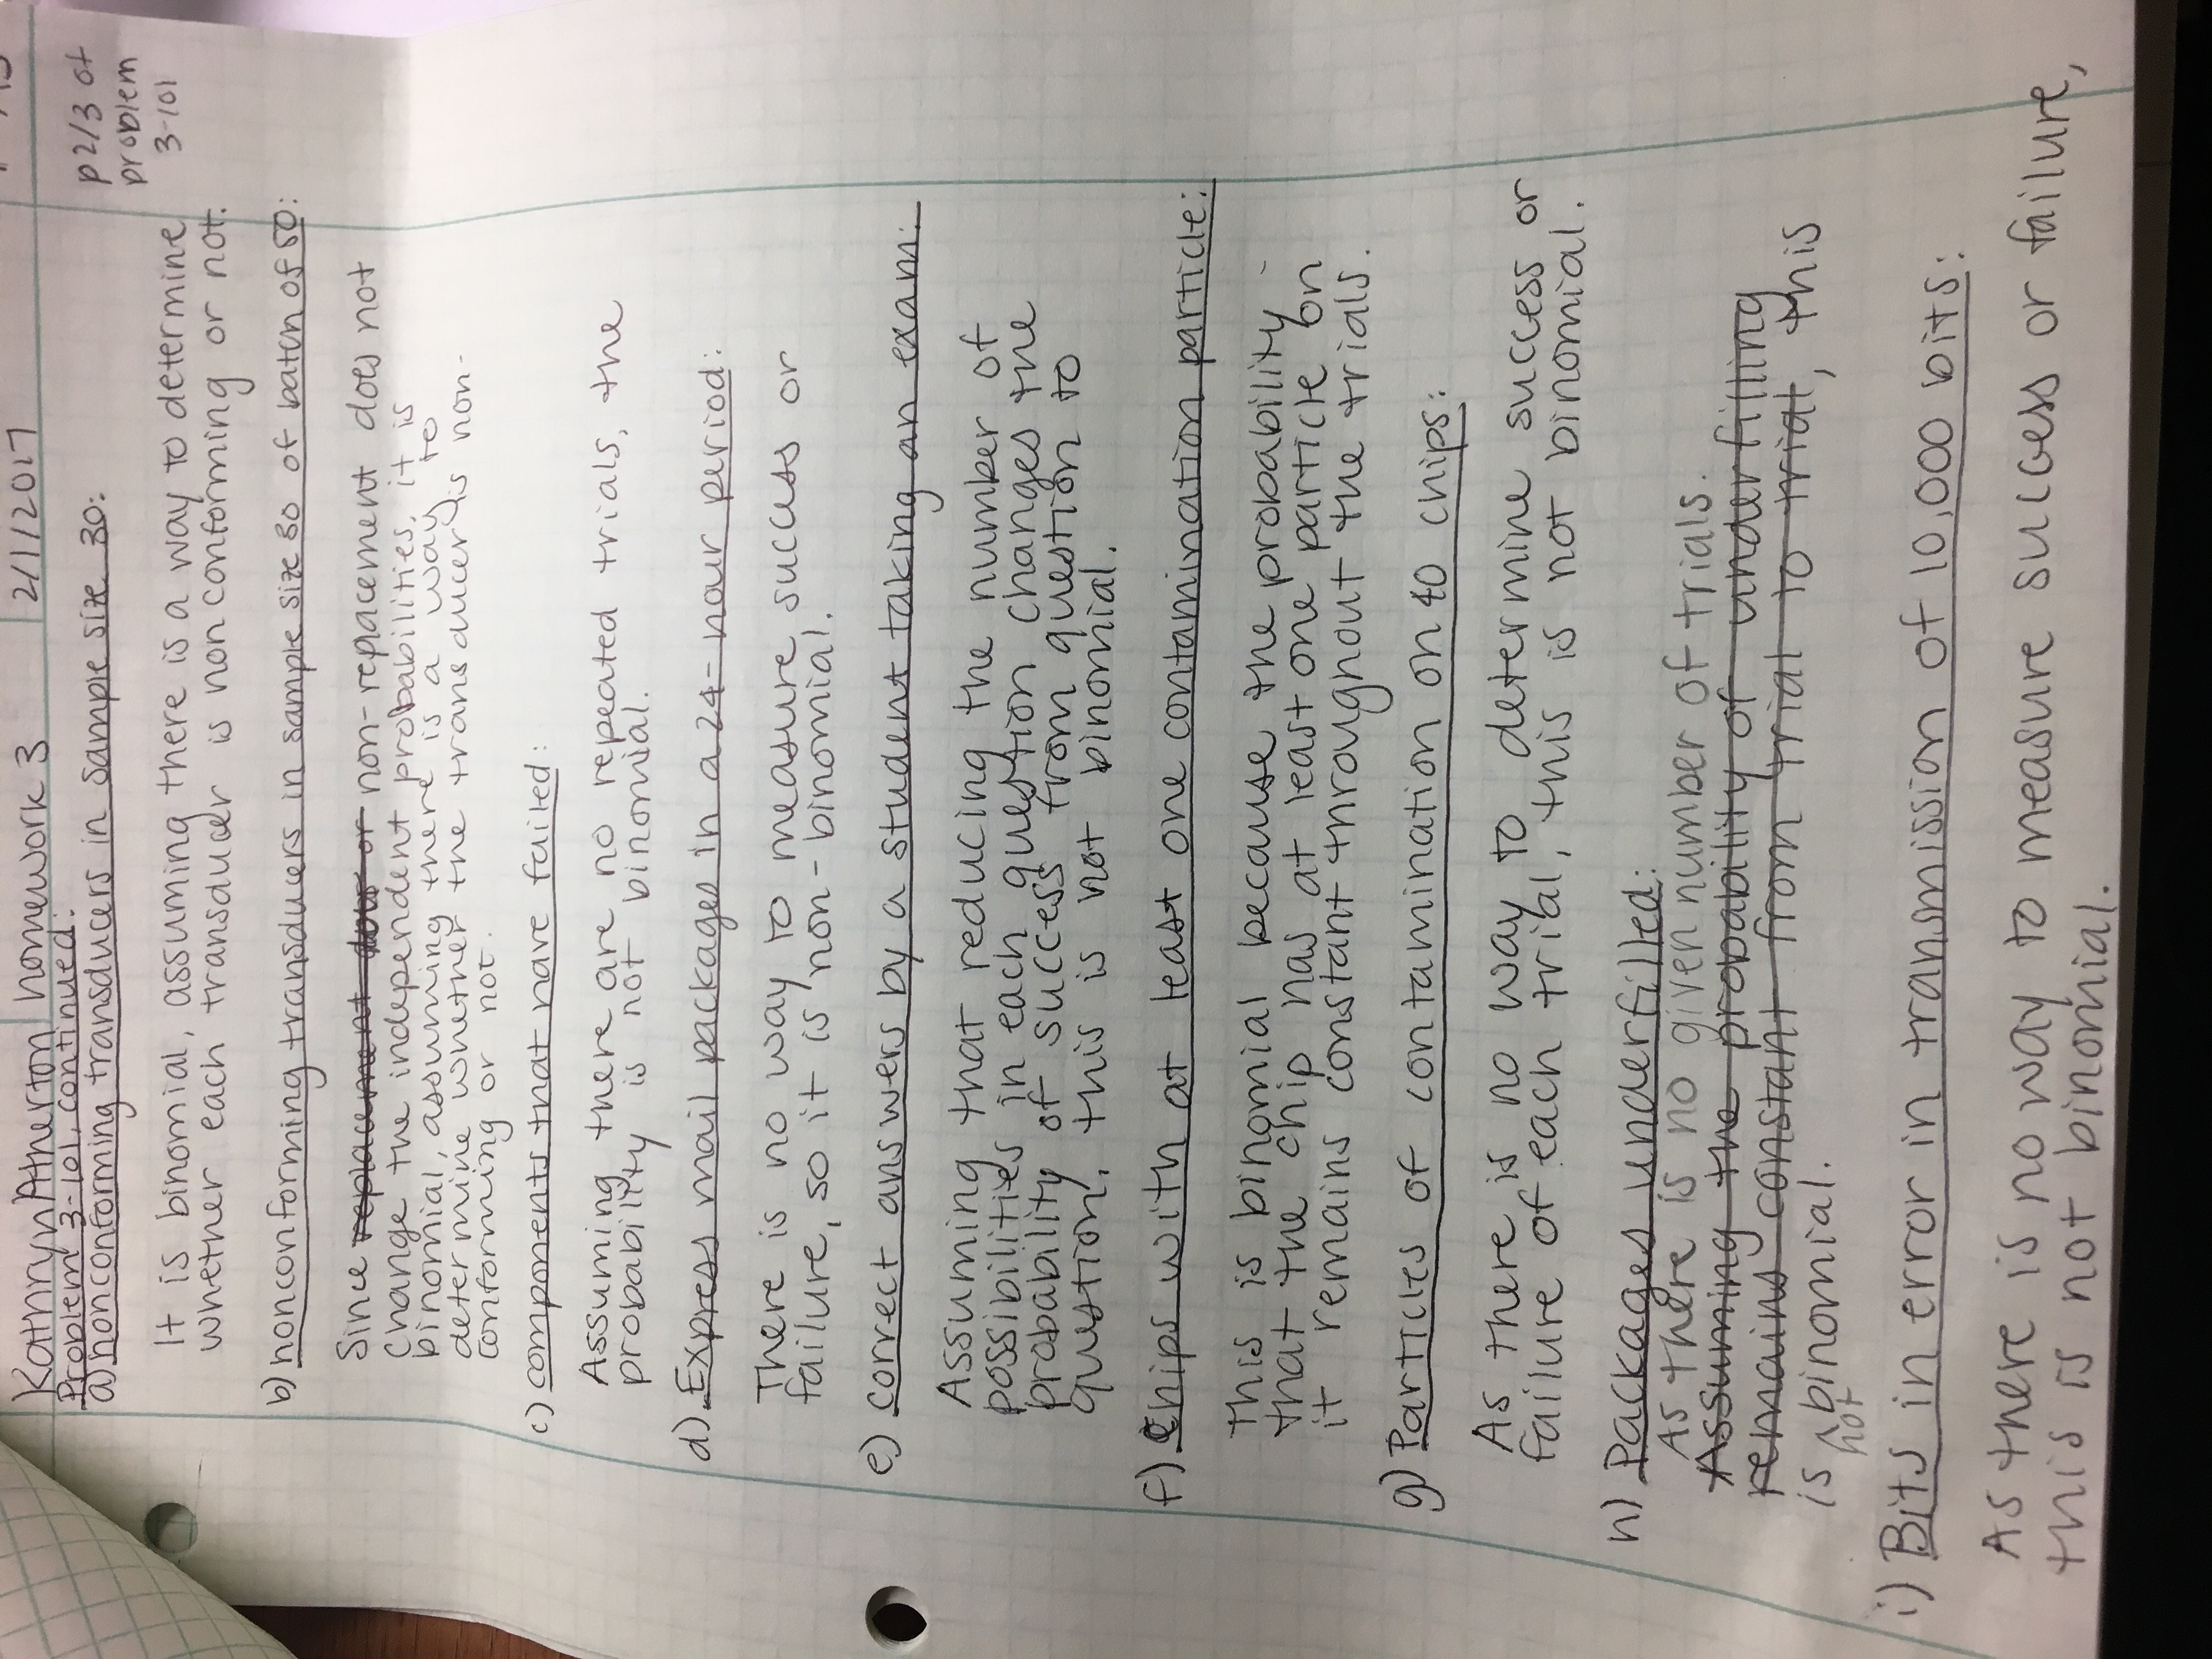 Kathryn Atherton
homework 3
2/1/2017
Problem 3-101, continued:
p2/3 of
problem
3-101
a) nonconforming transducers in sample size 30:
It is binomial, assuming there is a way to determine
whether each transducer is nonconforming or not.
b) nonconforming transducers in sample size 30 of batch of 50:
Since replacement does or non-replacement does not
change the independent probabilities, it is
binomial, assuming there is a way to
determine whether the transducer is non-
conforming or not.
c) components that have failed:
Assuming there are no repeated trials, the
probability is not binomial.
d) Express mail packages in a 24-hour period:
There is no way to measure success or
failure, so it is non-binomial.
e) correct answers by a student taking an exam:
Assuming that reducing the number of
possibilities in each question changes the
probability of success from question to
question, this is not binomial.
f) Chips with at least one contamination particle:
This is binomial because the probability
that the chip has at least one particle on
it remains constant throughout the trials.
g) Particles of contamination on 40 chips:
As there is no way to determine success or
failure of each trial, this is not binomial.
h) Packages underfilled:
As there is no given number of trials.
Assuming the probability of underfilling
remains constant from trial to trial, this
is binomial.
not
i) Bits in error in transmission of 10,000 bits:
As there is no way to measure success or failure,
this is not binomial.